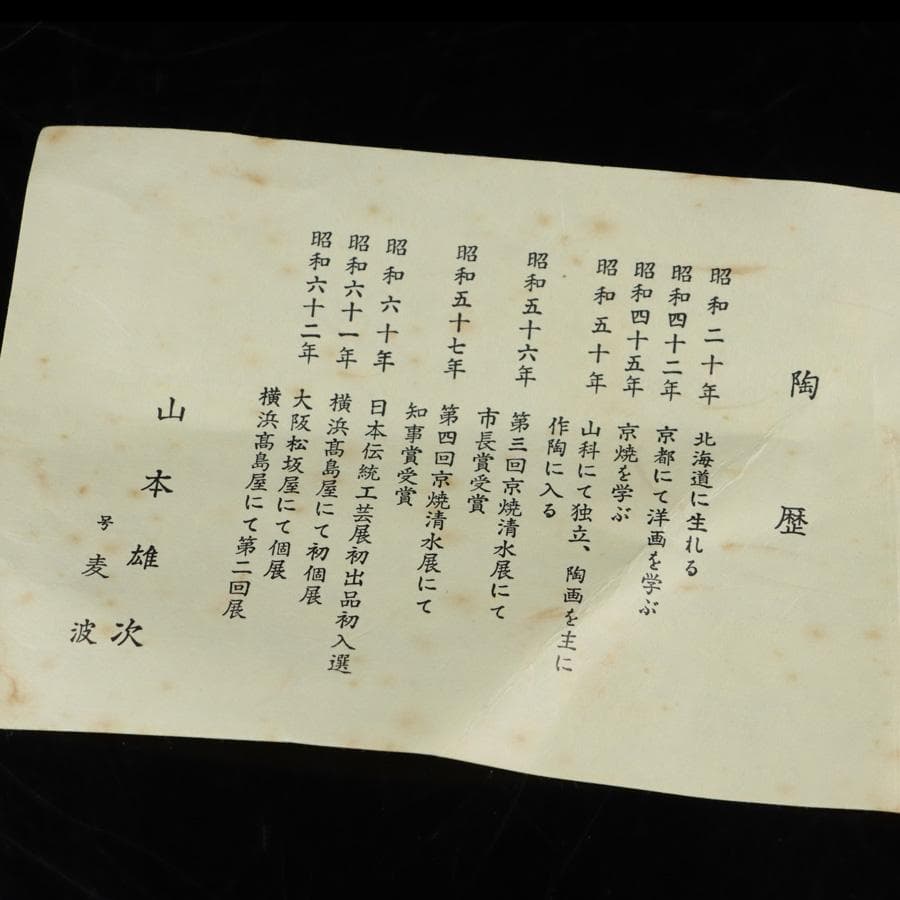 陶歴
昭和二十年 北海道に生れる
昭和四十二年 京都にて洋画を学ぶ
昭和四十五年 京焼を学ぶ
昭和五十年 山科にて独立、陶画を主に
作陶に入る
昭和五十六年 第三回京焼清水展にて
市長賞受賞
昭和五十七年 第四回京焼清水展にて
知事賞受賞
昭和六十年 日本伝統工芸展初出品初入選
昭和六十一年 横浜髙島屋にて初個展
昭和六十二年 大阪松坂屋にて個展
横浜髙島屋にて第二回展
山本雄次
号 麦波